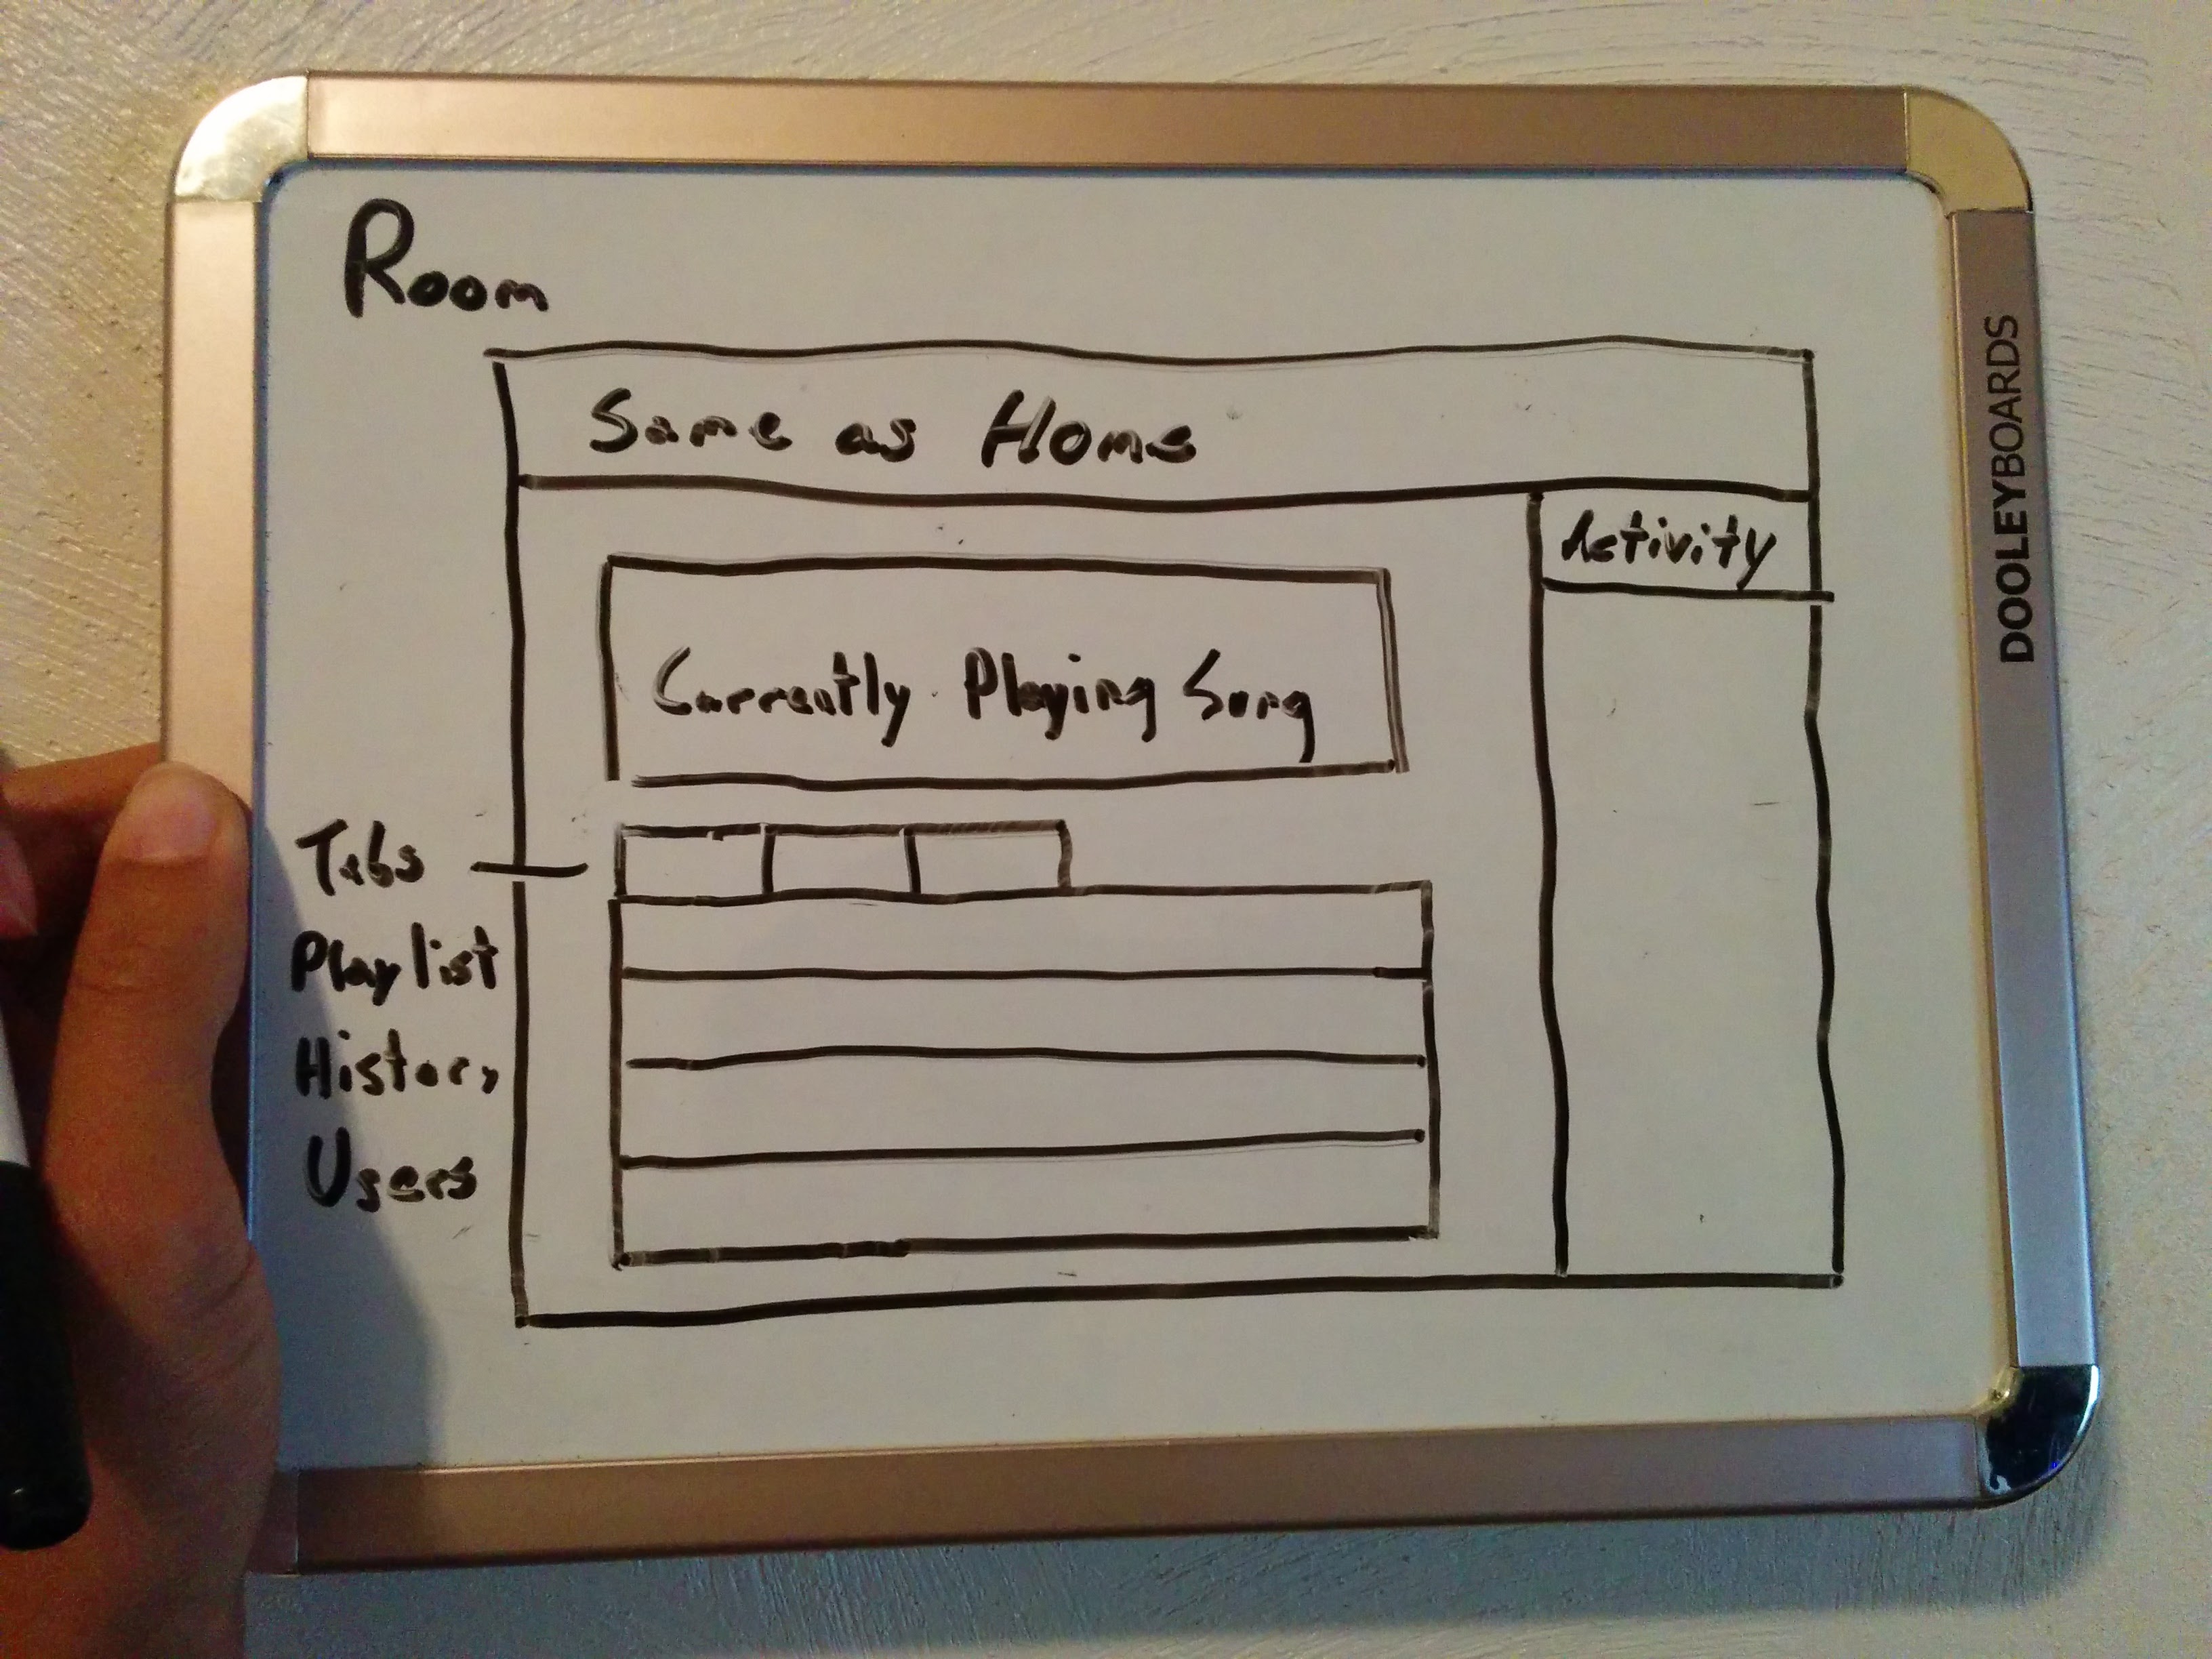 Room
Same as Home
Activity
Currently Playing Song
Tabs
Playlist
History
Users
DOOLEYBOARDS